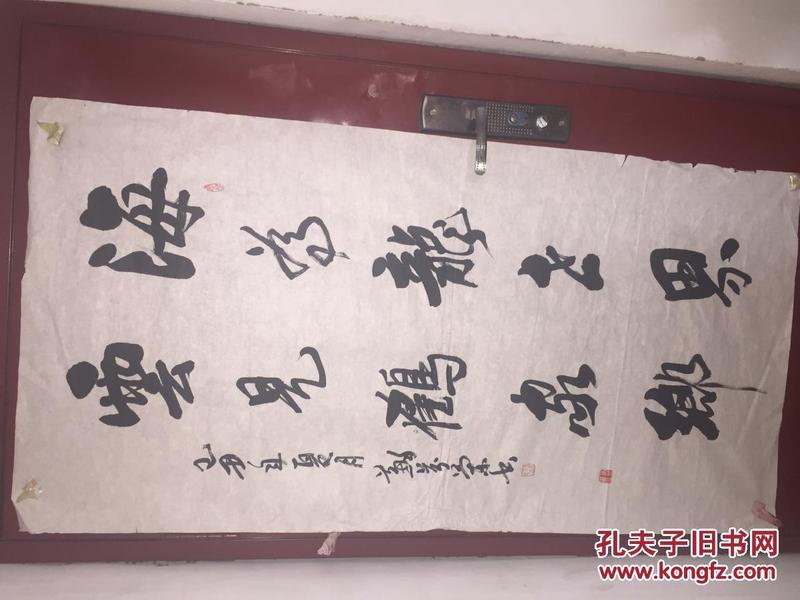 海為龍世界
雲見鶴家鄉
乙丑年夏月 書
孔夫子旧书网
www.kongfz.com